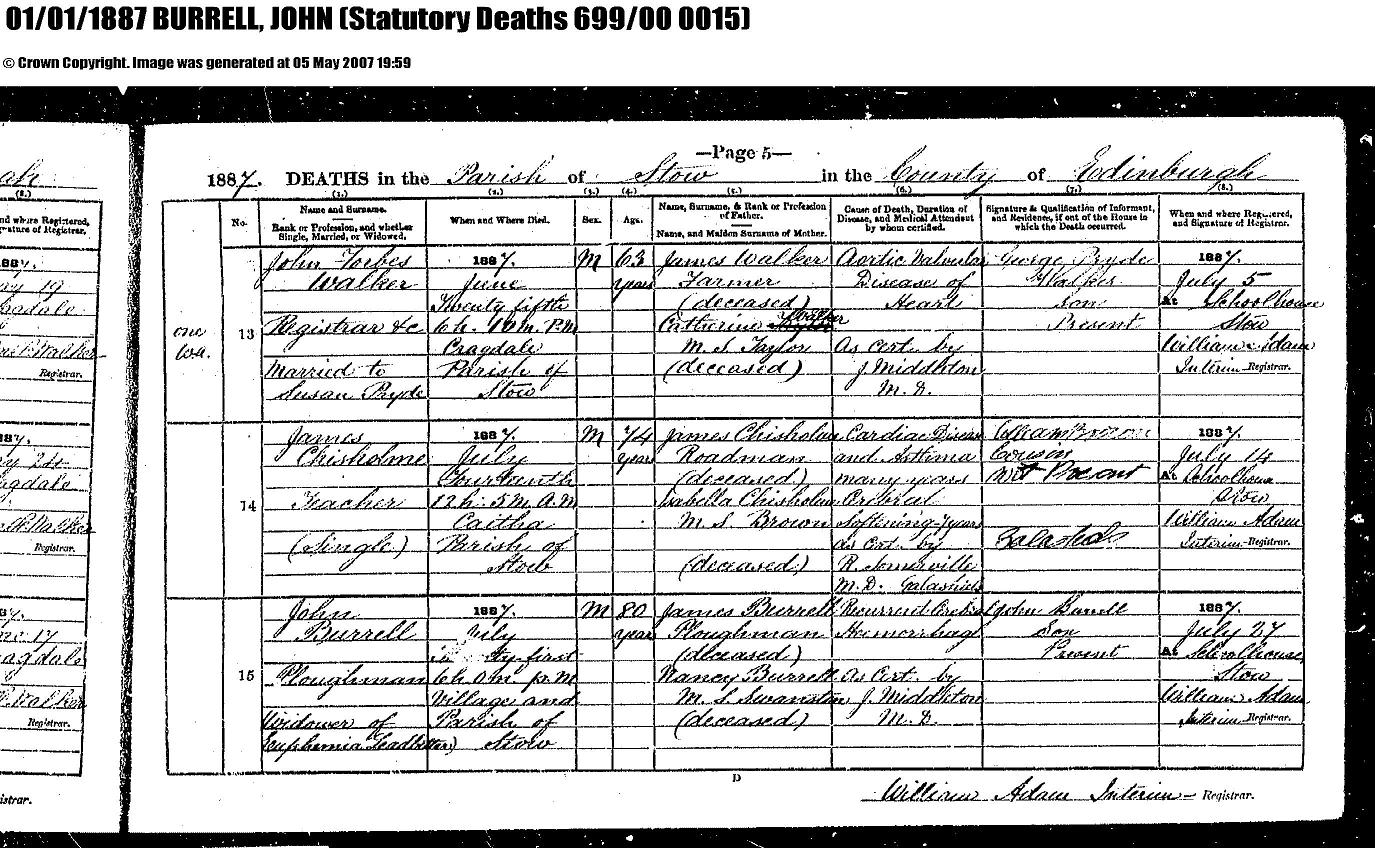 01/01/1887 BURRELL, JOHN (Statutory Deaths 699/00 0015)
© Crown Copyright. Image was generated at 05 May 2007 19:59
—Page 5—
1887. DEATHS in the Parish of Stow in the County of Edinburgh
(1.) (2.) (3.) (4.) (5.) (6.) (7.) (8.)
No.
Name and Surname.
Rank or Profession, and whether
Single, Married, or Widowed.
When and Where Died.
Sex.
Age.
Name, Surname, & Rank or Profession
of Father.
Name, and Maiden Surname of Mother.
Cause of Death, Duration of
Disease, and Medical Attendant
by whom certified.
Signature & Qualification of Informant,
and Residence, if out of the House in
which the Death occurred.
When and where Registered,
and Signature of Registrar.
one
wa.
13
John Forbes
Walker
Registrar &c
Married to
Susan Pryde
1887.
June
Twenty fifth
6h. 10m. P.M
Cragdale
Parish of
Stow
M
63
years
James Walker
Farmer
(deceased)
Catherine Walker
M. S. Taylor
(deceased)
Aortic Valvular
Disease of
Heart
As cert. by
J Middleton
M. D.
George Pryde
Walker
Son
Present
1887.
July 5
At Schoolhouse
Stow
William Adam
Interim Registrar.
14
James
Chisholme
Teacher
(Single)
1887.
July
Fourteenth
12h. 5m. A.M
Caitha
Parish of
Stow
M
74
years
James Chisholm
Roadman
(deceased)
Isabella Chisholm
M. S. Brown
(deceased)
Cardiac Disease
and Asthma
many years
Cerebral
Softening 7 years
as Cert. by
R. Somerville
M. D. Galashiels
William Brown
Cousin
Not Present
Galashiels
1887.
July 14
At Schoolhouse
Stow
William Adam
Interim Registrar.
15
John
Burrell
Ploughman
(Widower of
Euphemia Leadbetter)
1887.
July
6h. 0m. p.M
Village and
Parish of
Stow
M
80
years
James Burrell
Ploughman
(deceased)
Nancy Burrell
M. S. Swanston
(deceased)
Recurrent Cerebral
Haemorrhage
As Cert by
J. Middleton
M. D.
John Burrell
Son
Present
1887.
July 27
At Schoolhouse,
Stow
William Adam
Interim Registrar.
D
William Adam Interim Registrar.